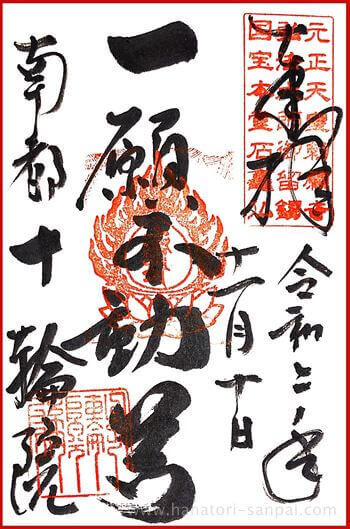 元正天皇勅願寺
弘法大師御留錫
国宝本堂石
奉拝
令和二年
十一月十日
一願不動尊
南都十輪院
www.hanatori-sanpai.com